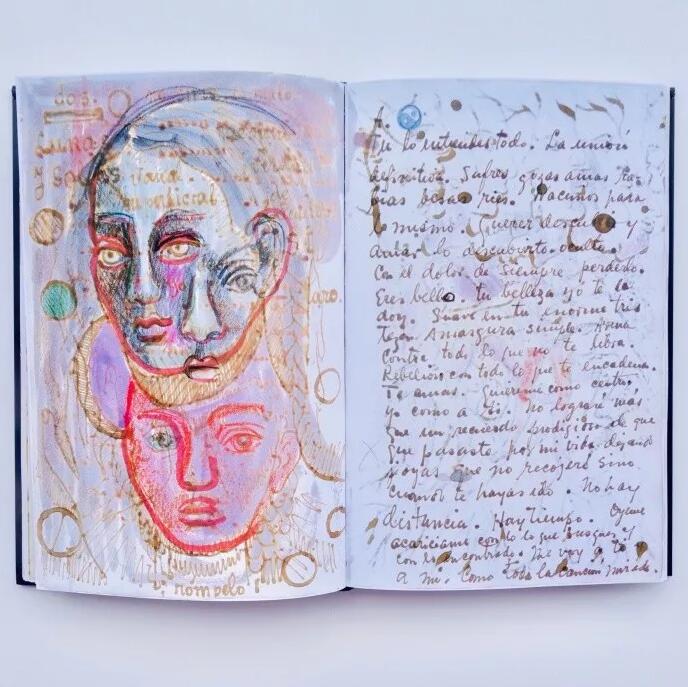 dos.
Luna
y
v, rompelo
Tu lo entiendes todo. La unión
definitiva. Sufres gozas amas ra-
bias besas ries. Nacimos para
lo mismo. Querer descubrir y
amar lo descubierto. oculto.
Con el dolor de siempre perderlo.
Eres bello. tu belleza yo te la
doy. Suave en tu enorme tris
teza. Amargura simple. Arma
contra todo lo que no te libra.
Rebelión con todo lo que te encadena.
Te amas. Quiereme como centro.
yo como a ti. No lograré más
que un recuerdo prodigioso de que
que pasaste por mi vida dejando
joyas que no recojeré sino
cuando te hayas ido. No hay
distancia. Hay tiempo. Oyeme
acariciame con lo que busques y
con lo encontrado. Me voy a ti
a mi. Como toda la cancion mirada.